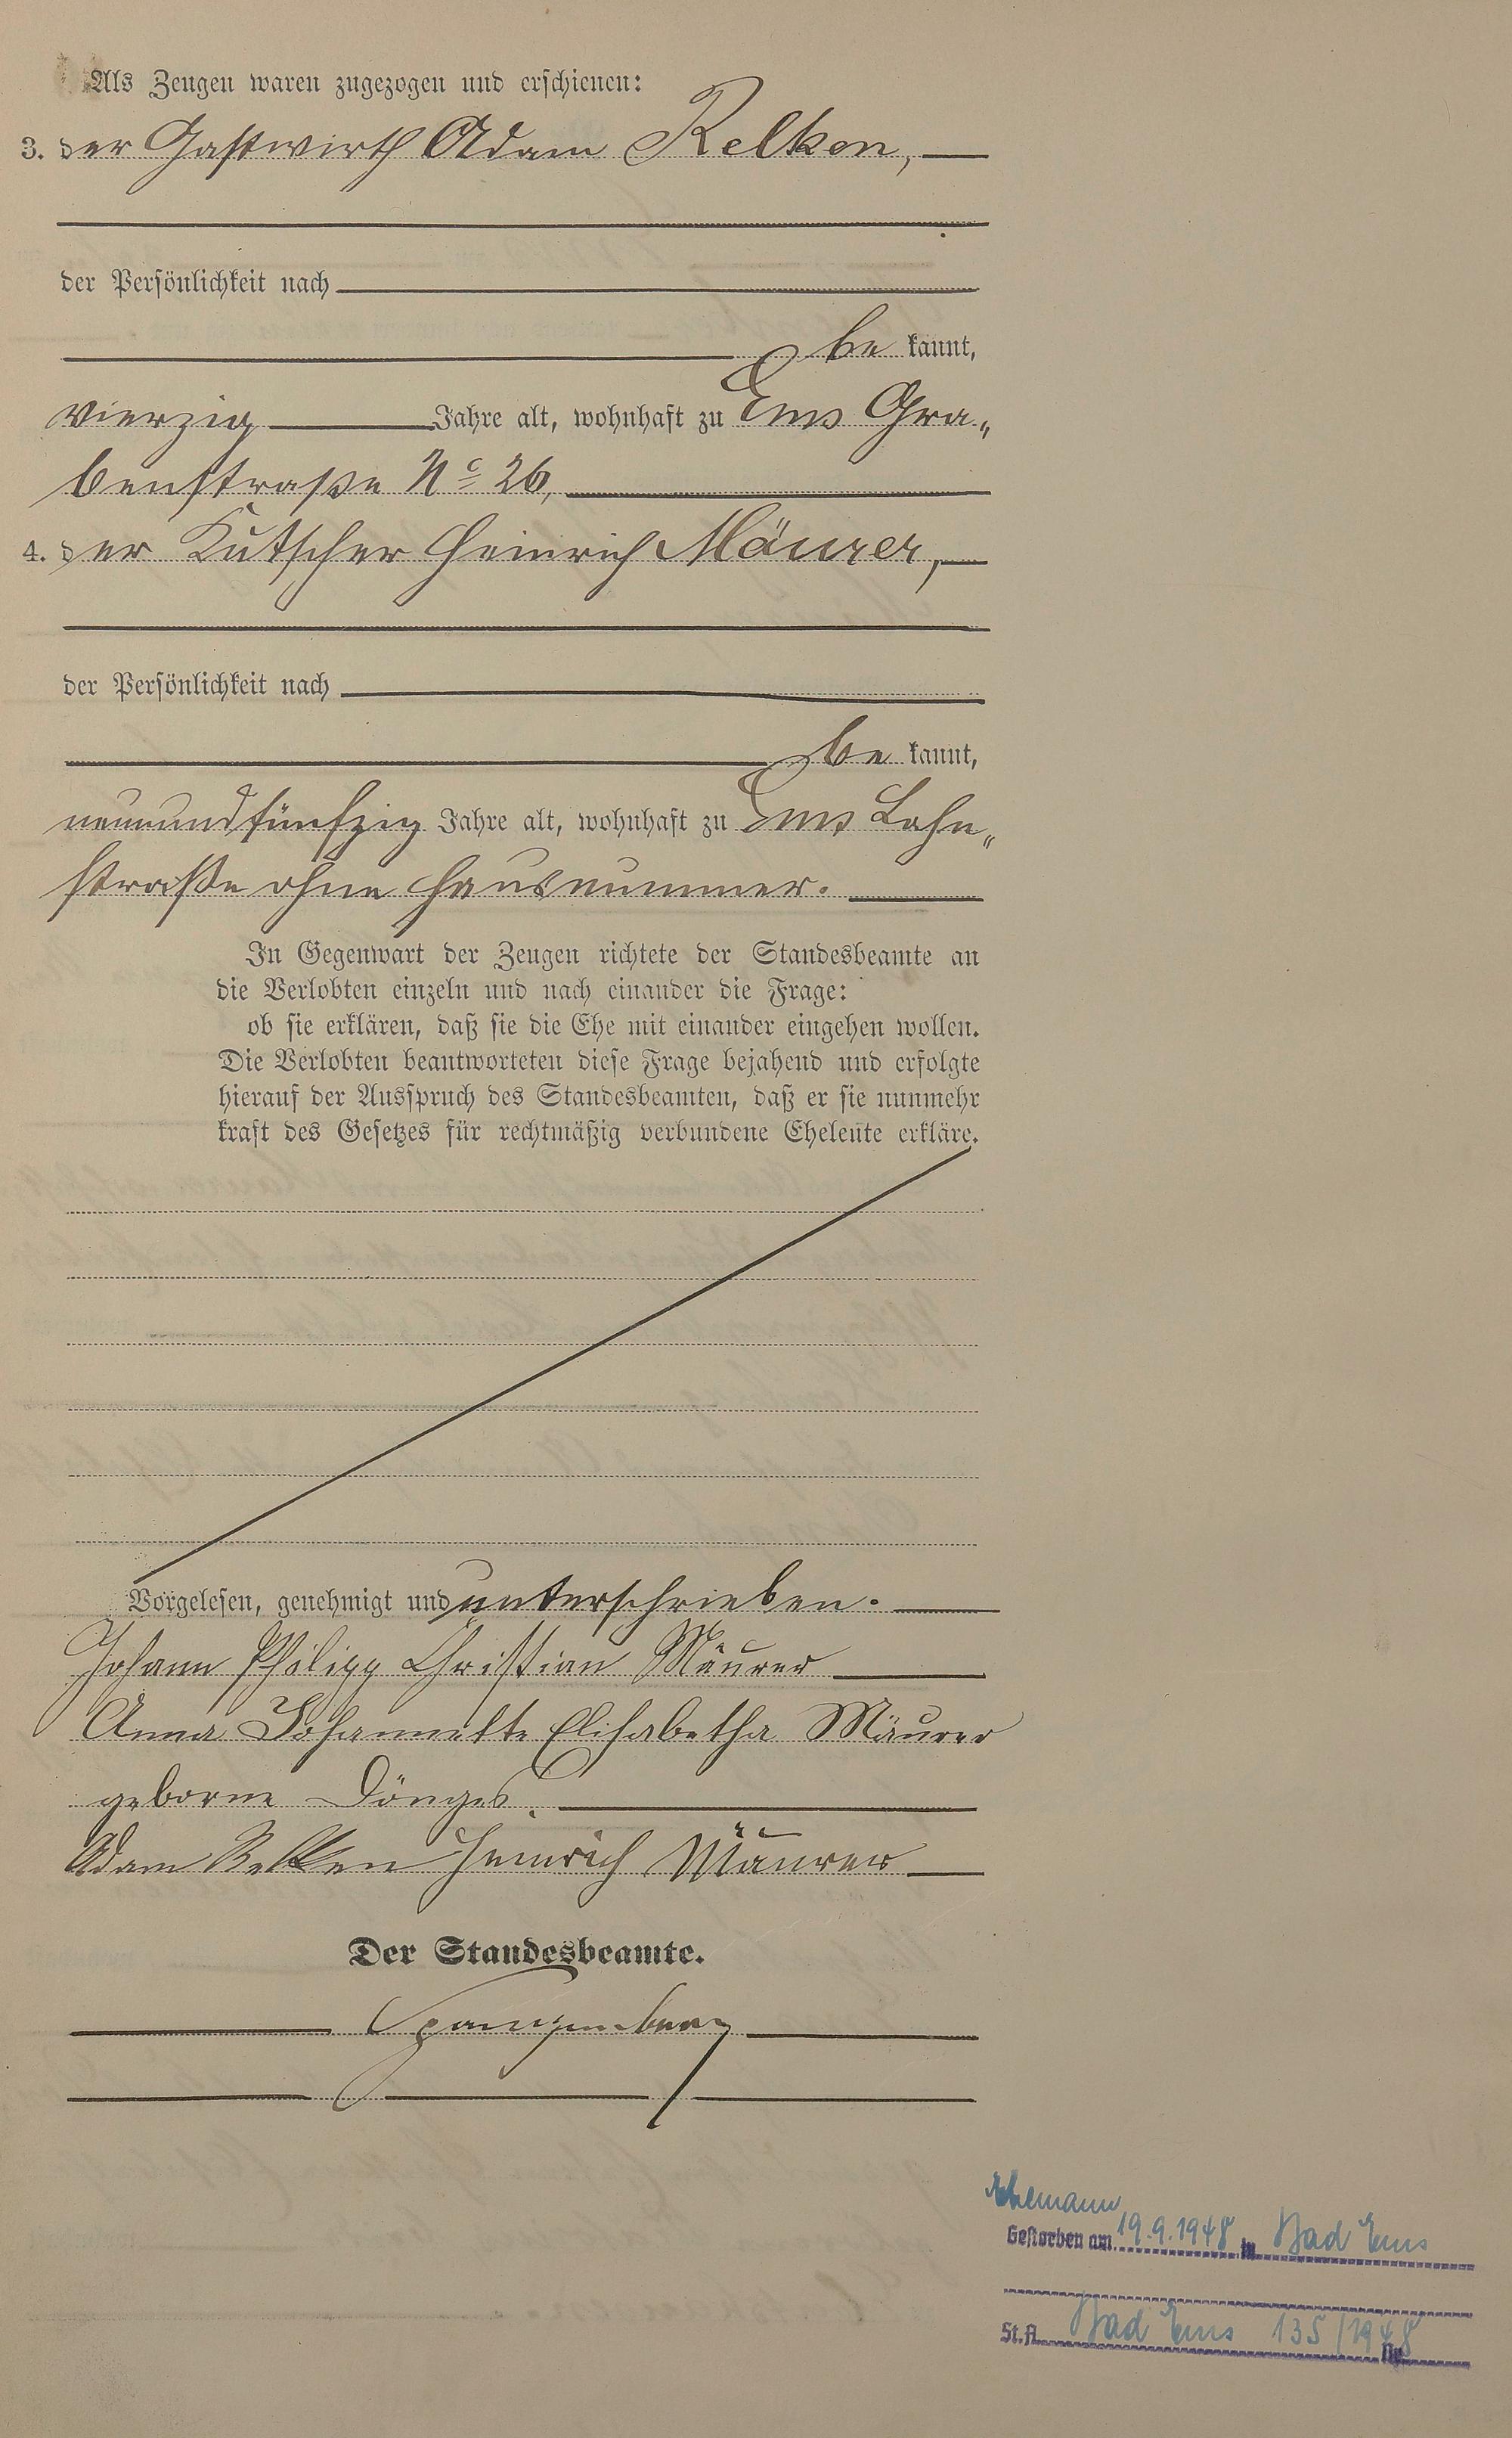 Als Zeugen waren zugezogen und erschienen:
3. der Gastwirth Adam Relken,
der Persönlichkeit nach
be kannt,
vierzig Jahre alt, wohnhaft zu Ems Gra„
benstraße No 26,
4. der Kutscher Heinrich Mäurer,
der Persönlichkeit nach
be kannt,
neunundfünfzig Jahre alt, wohnhaft zu Ems Lahn„
straße ohne Hausnummer.
In Gegenwart der Zeugen richtete der Standesbeamte an
die Verlobten einzeln und nach einander die Frage:
ob sie erklären, daß sie die Ehe mit einander eingehen wollen.
Die Verlobten beantworteten diese Frage bejahend und erfolgte
hierauf der Ausspruch des Standesbeamten, daß er sie nunmehr
kraft des Gesetzes für rechtmäßig verbundene Eheleute erkläre.
Vorgelesen, genehmigt und unterschrieben.
Johann Philipp Christian Mäurer
Anna Johannette Elisabetha Mäurer
geborne Dönges.
Adam Relken Heinrich Mäurer
Der Standesbeamte.
Spangenberg
Ehemann
Gestorben am 19.9.1948 in Bad Ems
St.A. Bad Ems 135/1948 Nr.